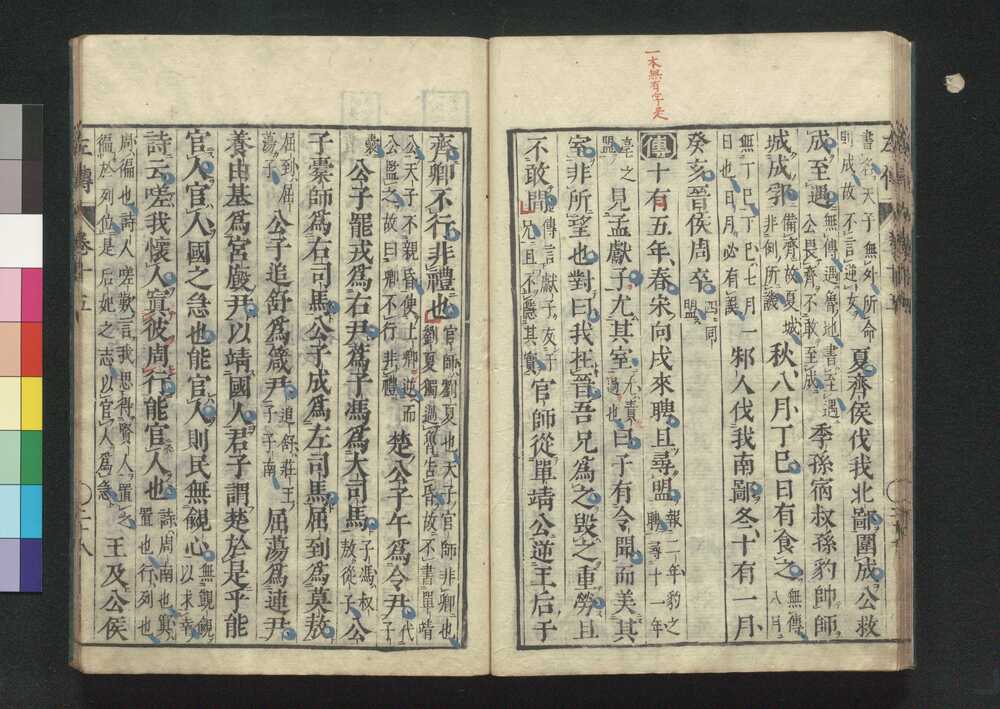 一本無有字是
書名天子無外所命
則成故不言逆女
夏齊侯伐我北鄙圍成公救
成至遇
無傳遇魯地書至遇
公畏齊不敢至成
季孫宿叔孫豹帥師
城成郛
備齊故夏城
非例所譏
秋八月丁巳日有食之
無傳
八月
無丁巳丁巳七月一
日也日月必有誤
邾人伐我南鄙冬十有一月
癸亥晉侯周卒
四同
盟
傳
十有五年春宋向戌來聘且尋盟
報二年豹之
聘尋十一年
亳之
盟
見孟獻子尤其室
尤責
過也
曰子有令聞而美其
室非所望也對曰我在晉吾兄為之毀之重勞且
不敢間
傳言獻子友于
兄且不隱其實
官師從單靖公逆王后于
齊卿不行非禮也
官師劉夏也天子官師非卿也
劉夏獨過魯告昏故不書單靖
公天子不親昏使上卿逆而
公監之故曰卿不行非禮
楚公子午為令尹
代
子
囊
公子罷戎為右尹蒍子馮為大司馬
子馮叔
敖從子
公
子橐師為右司馬公子成為左司馬屈到為莫敖
屈到屈
蕩子
公子追舒為箴尹
追舒莊王
子子南
屈蕩為連尹
養由基為宮廄尹以靖國人君子謂楚於是乎能
官人官人國之急也能官人則民無覦心
無覬覦
以求幸
詩云嗟我懷人寘彼周行能官人也
詩周南也寘
置也行列也
周徧也詩人嗟歎言我思得賢人置之
徧於列位是后妃之志以官人為急
王及公侯
左傳
卷十五
二十八